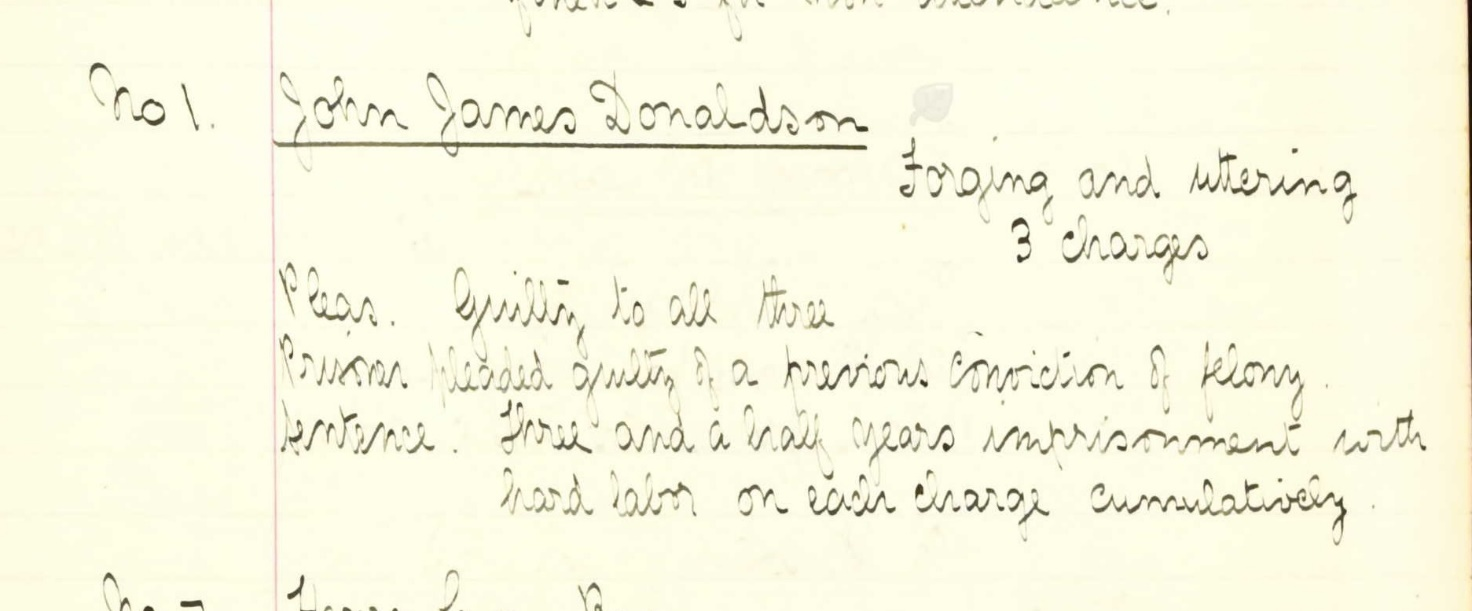 fined £5 for non attendance.
No 1. John James Donaldson
Forging and uttering
3 charges
Pleas. Guilty to all three
Prisoner pleaded guilty of a previous conviction of felony.
Sentence. Three and a half years imprisonment with
hard labor on each charge cumulatively.